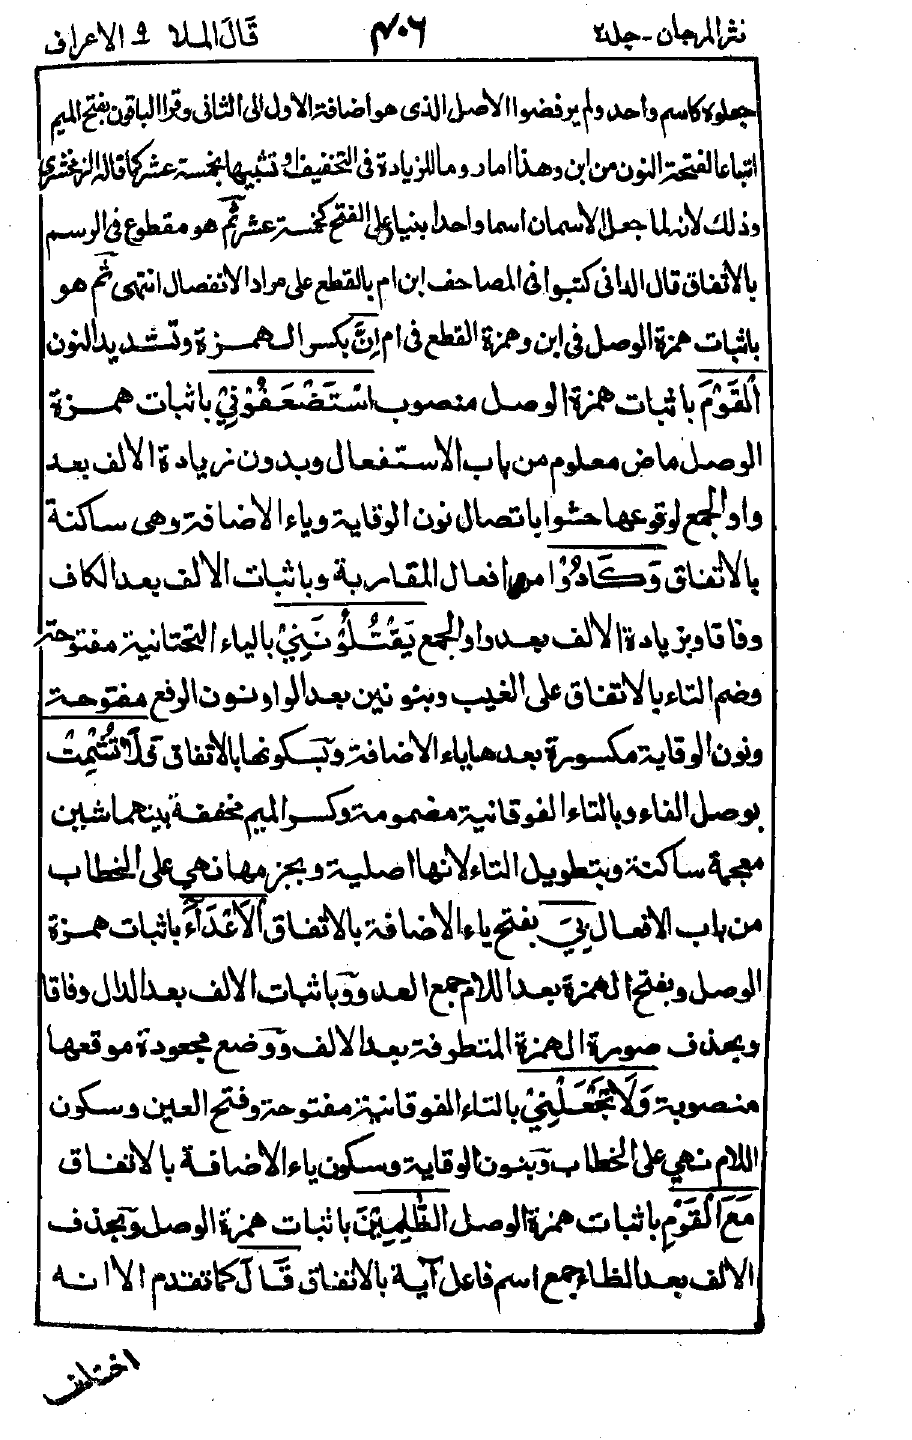 نثر المرجان - جلد ٢ ٤٠٦ قَالَ الملا ٩ الاعراف
جعلوه كاسم واحد ولم يرفضوا الاصل الذى هو اضافة الاول الى الثانى وقرا الباقون بفتح الميم
اتباعا لفتحة النون من ابن وهذا امار وما للزيادة فى التخفيف او تشبيها بخمسة عشر كما قاله الزمخشرى
وذلك لانه لما جعل الاسمان اسما واحدا بنيا على الفتح كخمسة عشر ثم هو مقطوع فى الرسم
بالاتفاق قال الدانى كتبوا فى المصاحف ابن ام بالقطع على مراد الانفصال انتهى ثم هو
باثبات همزة الوصل فى ابن وهمزة القطع فى ام اِنَّ بكسر الهمزة وتشديد النون
الْقَوْمَ باثبات همزة الوصل منصوب اسْتَضْعَفُوْنِيْ باثبات همزة
الوصل ماض معلوم من باب الاستفعال وبدون زيادة الالف بعد
واو الجمع لوقوعها حشوا باتصال نون الوقاية وياء الاضافة وهى ساكنة
بالاتفاق وَكَادُوْا من افعال المقاربة وباثبات الالف بعد الكاف
وفاقا وبزيادة الالف بعد واو الجمع يَقْتُلُوْنَنِيْ بالياء التحتانية مفتوحة
وضم التاء بالاتفاق على الغيب وبنونين بعد الواو نون الرفع مفتوحة
ونون الوقاية مكسورة بعدها ياء الاضافة وبسكونها بالاتفاق فَلَا تُشْمِتْ
بوصل الفاء وبالتاء الفوقانية مضمومة وكسر الميم مخففة بينهما شين
معجمة ساكنة وبتطويل التاء لانها اصلية وبجزمها نهي على الخطاب
من باب الافعال بِيَ بفتح ياء الاضافة بالاتفاق الْاَعْدَآءَ باثبات همزة
الوصل وبفتح الهمزة بعد اللام جمع العدو وباثبات الالف بعد الدال وفاقا
وبحذف صورة الهمزة المتطوفة بعد الالف ووضع مجعودة موقعها
منصوبة وَلَا تَجْعَلْنِيْ بالتاء الفوقانية مفتوحة وفتح العين وسكون
اللام نهي على الخطاب وبنون الوقاية وسكون ياء الاضافة بالاتفاق
مَعَ الْقَوْمِ باثبات همزة الوصل الظّٰلِمِيْنَ باثبات همزة الوصل وبحذف
الالف بعد الظاء جمع اسم فاعل آية بالاتفاق قَالَ كما تقدم الا انه
اختلف